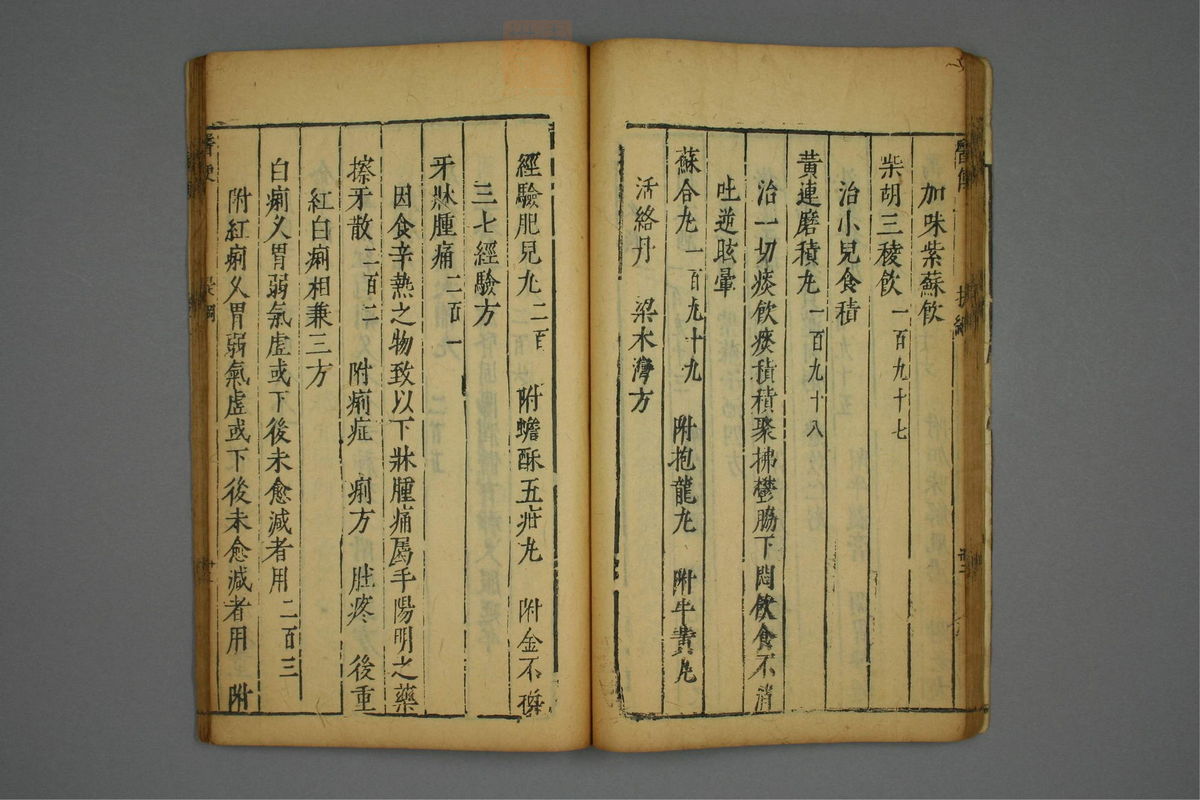 加味紫蘇飲
柴胡三稜飲 一百九十七
治小兒食積
黃連磨積丸 一百九十八
治一切痰飲痰積積聚拂鬱脇下悶飲食不消
吐逆眩暈
蘇合丸 一百九十九 附抱龍丸 附牛黃丸
活絡丹 梁木灣方
經驗肥兒丸 二百 附蟾酥五疳丸 附金不換
三七經驗方
牙牀腫痛 二百一
因食辛熱之物致以下牀腫痛屬手陽明之藥
擦牙散 二百二 附痢症 痢方 肚疼 後重
紅白痢相兼三方
白痢久胃弱氣虛或下後未愈減者用 二百三
附紅痢久胃弱氣虛或下後未愈減者用 附